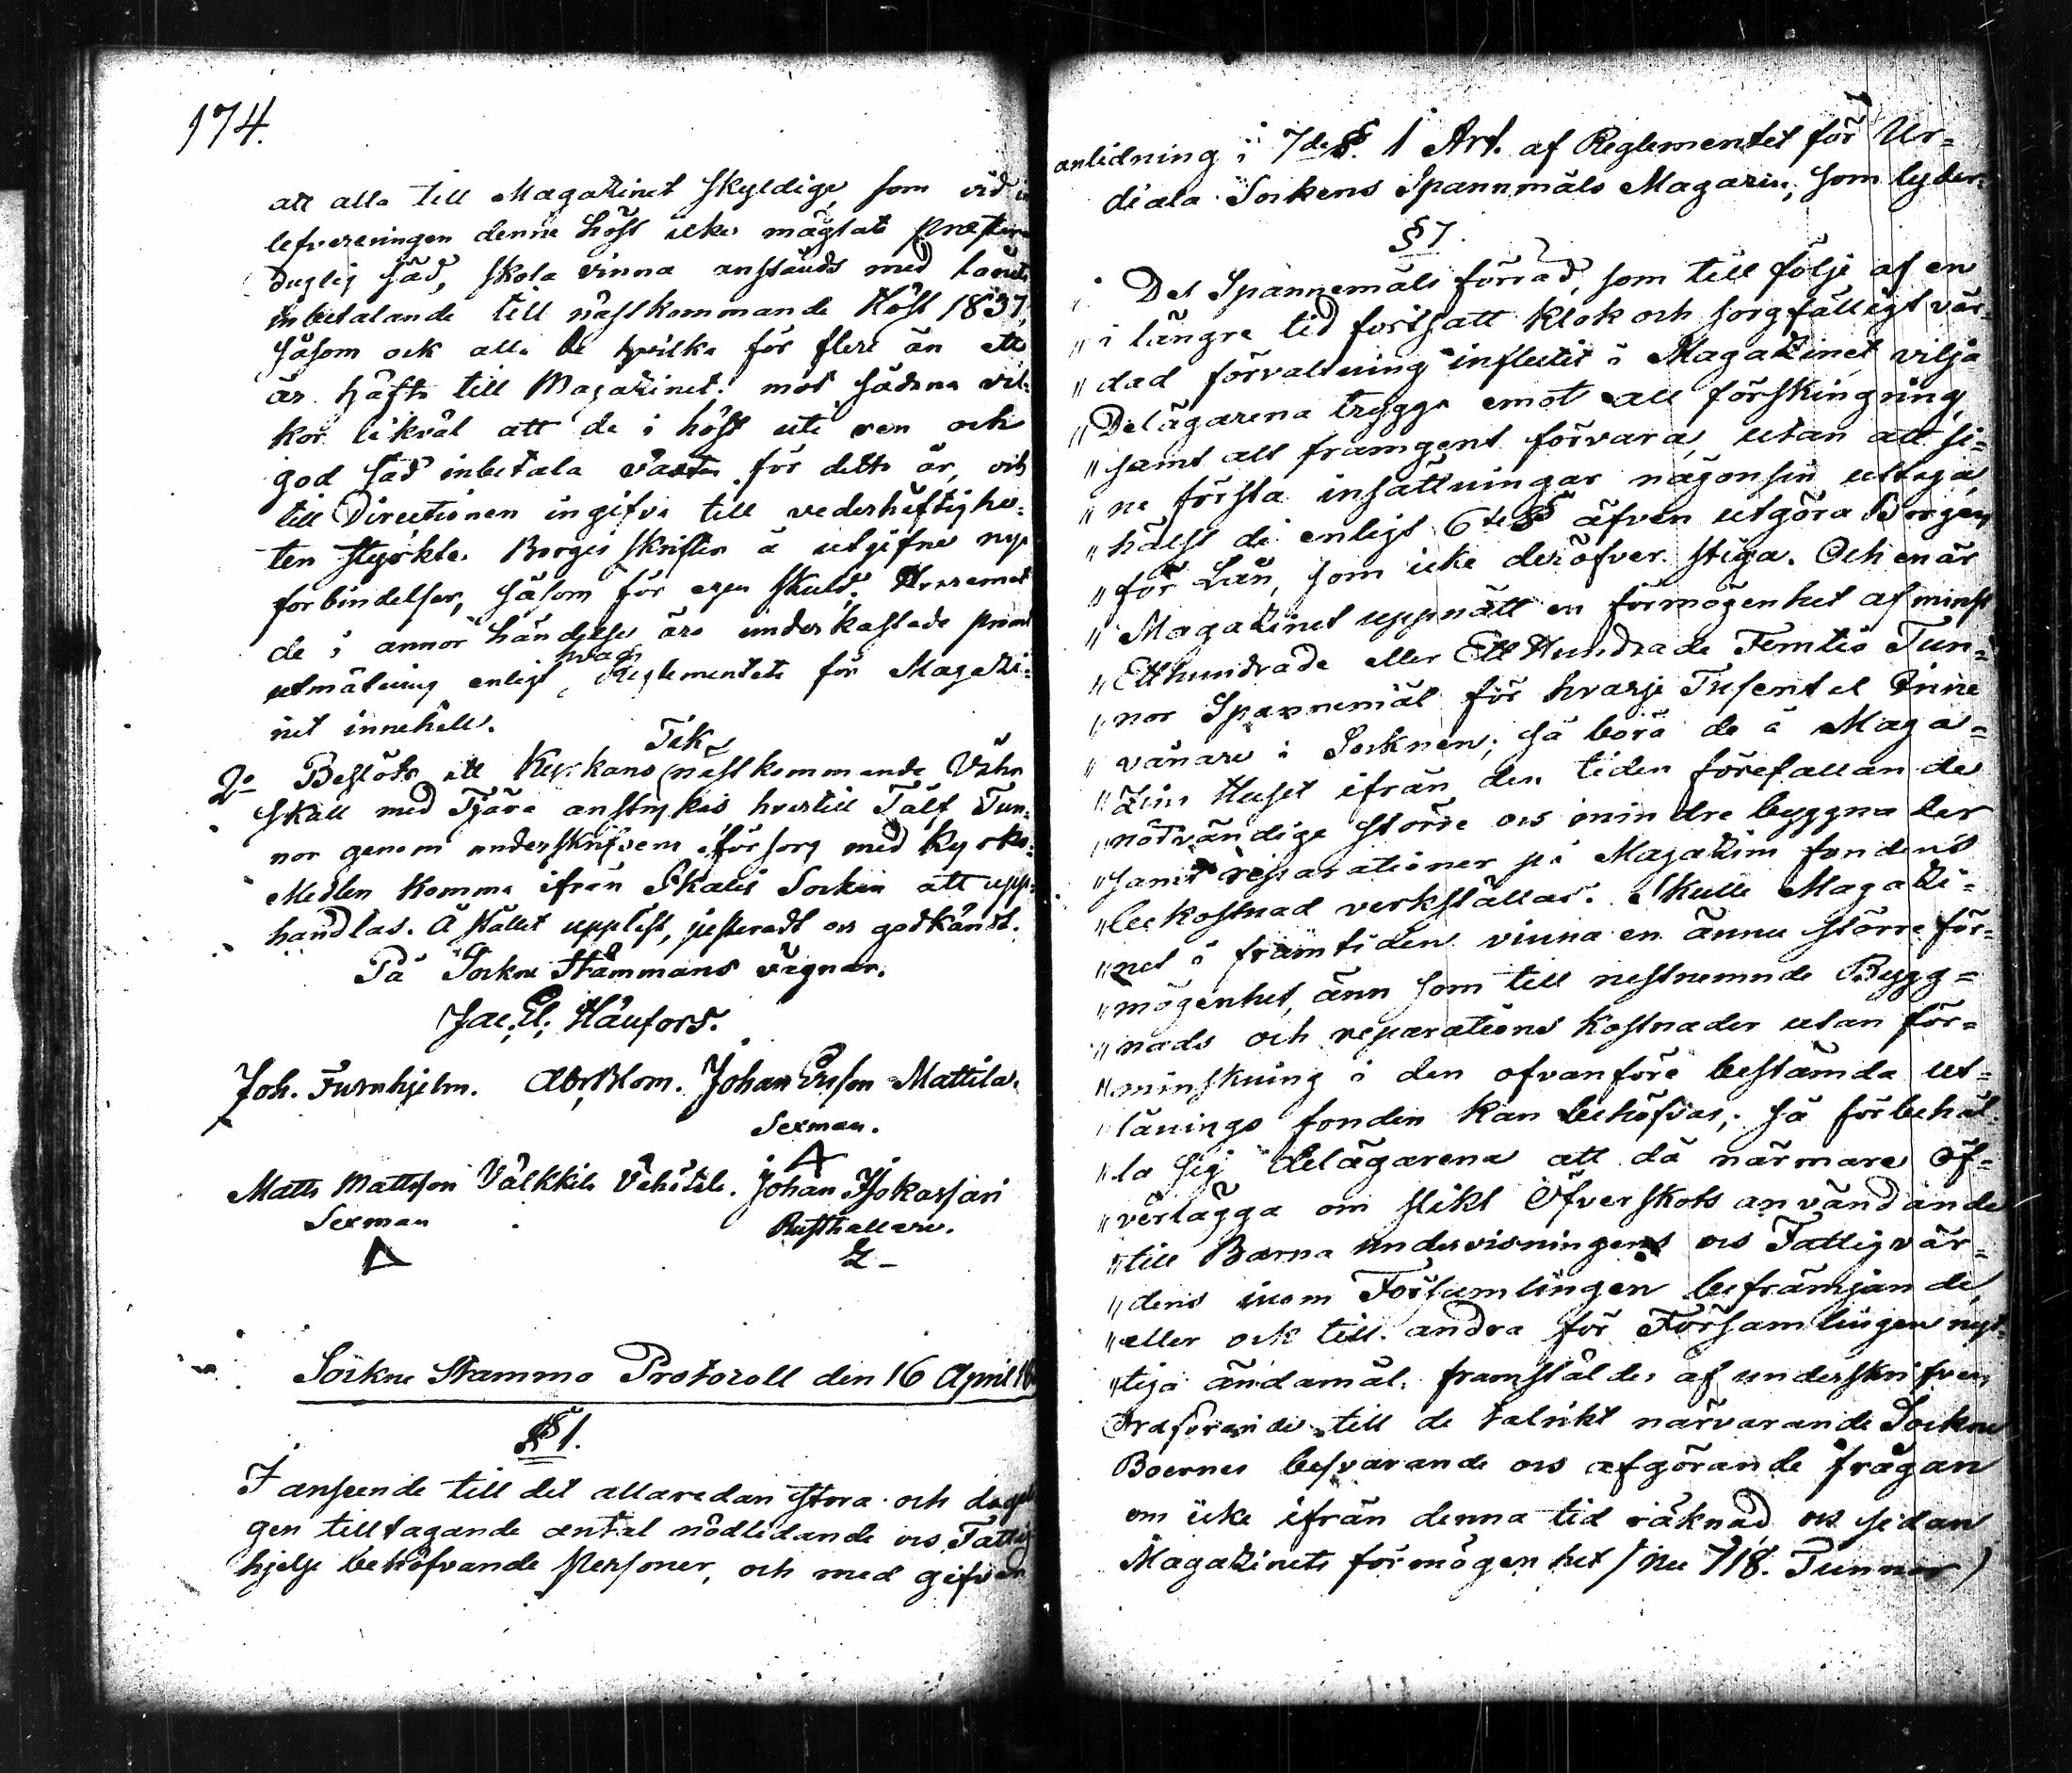 174.
att alla till Magazinet skyldige, som vid in
lefvereringen denne höst icke mägtat præstera
duglig säd, skola vinna anstånds med lånets
inbetalande till nästkommande Höst 1837,
såsom ock alla de hvilka för flere än ett
år häfta till Magazinet; mot sådana vil-
kor likväl att de i höst uti ren och
god säd inbetala räntan för detta år, och
till Directionen ingifva till vederhäftighe-
ten styrkte Borgesskrifter å utgifne nye
förbindelser, såsom för egen skuld. Hvaremot
de i annor händelse äro underkastade
utmätning enligt hvad Reglementets för Magazi-
net innehåll.
2o Beslöts att Kyrkans Tak nästkommande Våhr
skall med Tjära anstrykas hvartill Tålf Tun-
nor genom underskrifvens försorg med Kyrko-
Medlen komma ifrån Ikalis Socken att upp-
handlas. Å stället uppläst, justeradt och godkändt.
På Sockne Stämmans vägnar.
Jac. El. Hänfors.
Joh. Furuhjelm. Abr. Blom. Johan Ersson Mattila.
Sexman.
Matts Mattsson Välkkilä Vehitele. Johan Isokarsari
Sexman Rusthållare.
Sockne Stämmo Protocoll den 16 April 18
§ 1.
I anseende till det allaredan stora och dagel
gen tilltagande antal nödlidande och Fattig
hjelp behöfvande Personer, och med gifven
anlidning i 7de §. 1 Art. af Reglementet för Ur-
diala Sockens Spannmåls Magazin, som lyder:
§ 7.
" Det Spannemåls förråd, som till följe af en
" i längre tid fortsatt klok och sorgfälligt vår-
" dad förvaltning influtit i Magazinet, vilja
" Delägarena trygga emot all förskingring,
" samt allt framgent förvara, utan att si-
" ne första insättningar någonsin uttaga,
" hälst de enligt 6te § äfven utgöra Borgen
" för Lån, som icke deröfver stiga. Och enär
" Magazinet uppnått en förmögenhet af minst
" Etthundrade eller Ett Hundrade Femtio Tun-
" nor Spannemål för hvarje Tusental Inne
" vånare i Socknen; så böra de å Maga-
" zins Huset ifrån den tiden förefallande
" nödvändige större och mindre byggnader
" samt reparationer på Magazins fondens
" bekostnad verkställas. Skulle Magazi-
" net i framtiden vinna en ännu större för-
" mögenhet, änn som till nestnemnde Bygg-
" nads och reparations kostnader utan för-
" minskning i den ofvanföre bestämda ut-
" lånings fonden kan behöfvas; så förbehål-
" la sig delägarena att då närmare Öf-
" verlägga om slikt Öfverskots användande
" till Barna undervisningens och Fattigvår-
" dens inom Församlingen befrämjande,
" eller ock till andra för Församlingen nyt-
" tiga ändamål. framstäldes af underskrifven
Ordförande till de talrikt närvarande Sockne
Boernes besvarande och afgörande frågan
om icke ifrån denna tid räknad och sedan
Magazinets förmögenhet / nu 718. Tunnor /